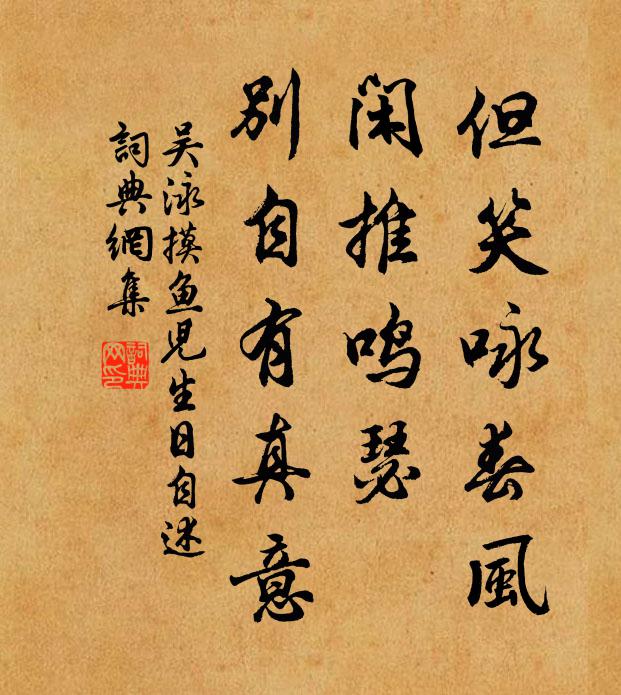 但笑咏春風
闲推鸣瑟
别自有真意
吴泳摸鱼児生日自述
詞典網集
詞典網印